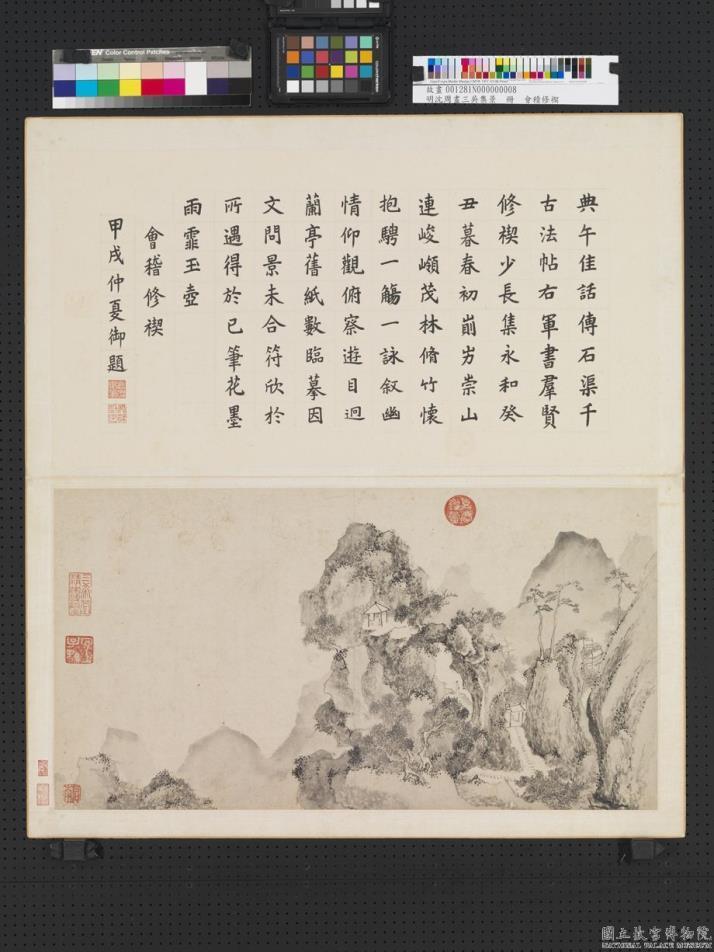 Color Control Patches
故畫 001281N000000008
明沈周畫三吳集景 冊 會稽修禊
典午佳話傳石渠千
古法帖右軍書羣賢
修禊少長集永和癸
丑暮春初崩岃崇山
連峻嶺茂林脩竹懷
抱騁一觴一詠叙幽
情仰觀俯察遊目迴
蘭亭舊紙數臨摹因
文問景未合符欣於
所遇得於已筆花墨
雨霏玉壺
會稽修禊
甲戌仲夏御題
國立故宮博物院
NATIONAL PALACE MUSEUM